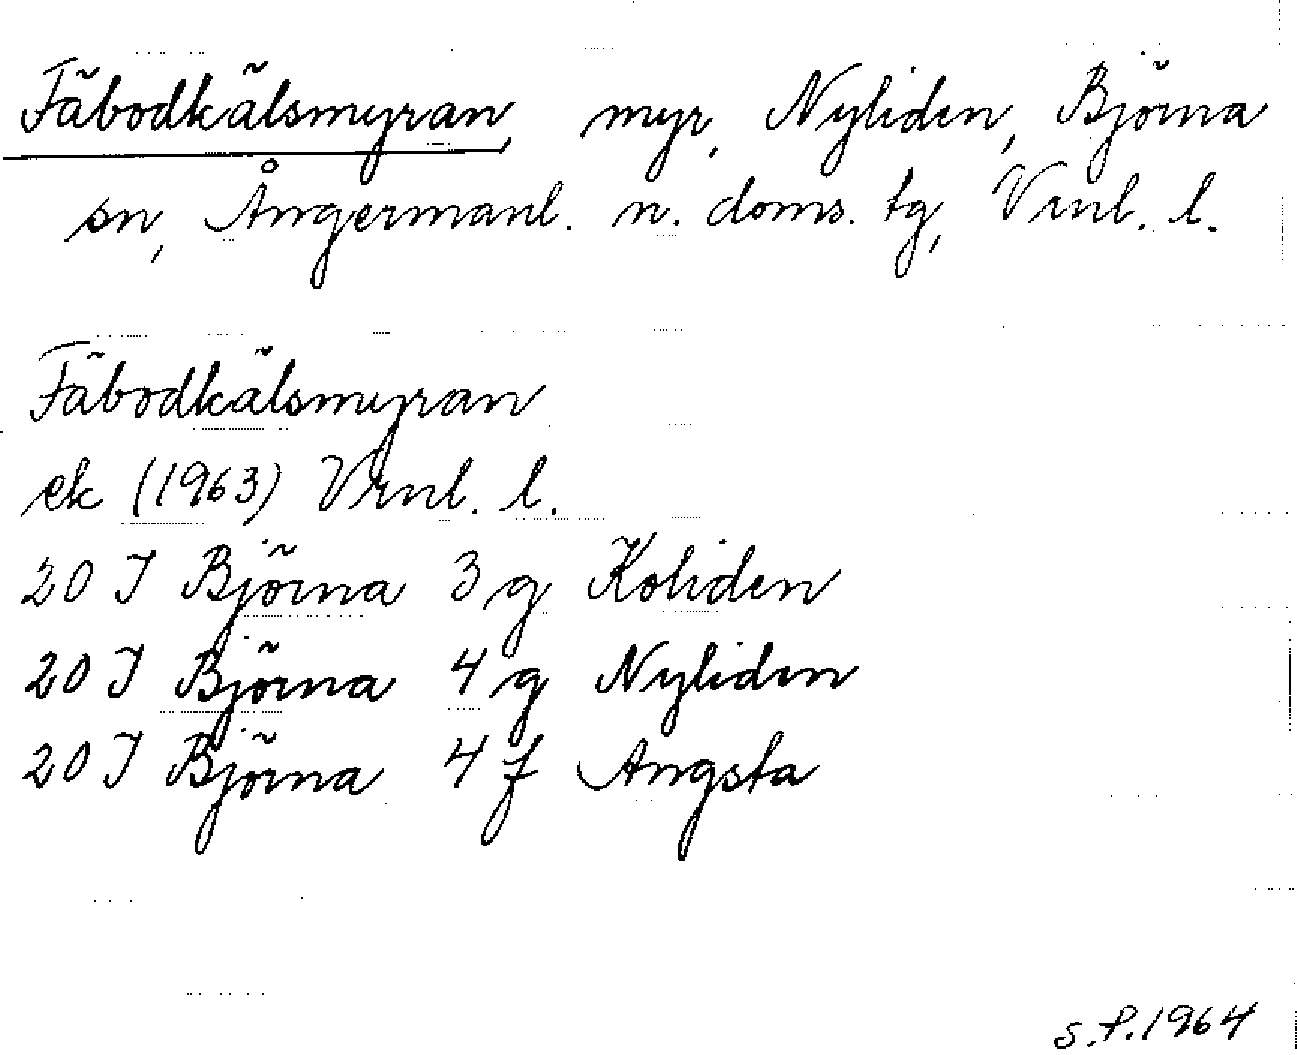 Fäbodkälsmyran, myr, Nyliden, Björna
sn, Ångermanl. n. doms. tg, Vrnl. l.
Fäbodkälsmyran
ek (1963) Vrnl. l.
20 I Björna 3 g Koliden
20 I Björna 4 g Nyliden
20 I Björna 4 f Angsta
S.P. 1964